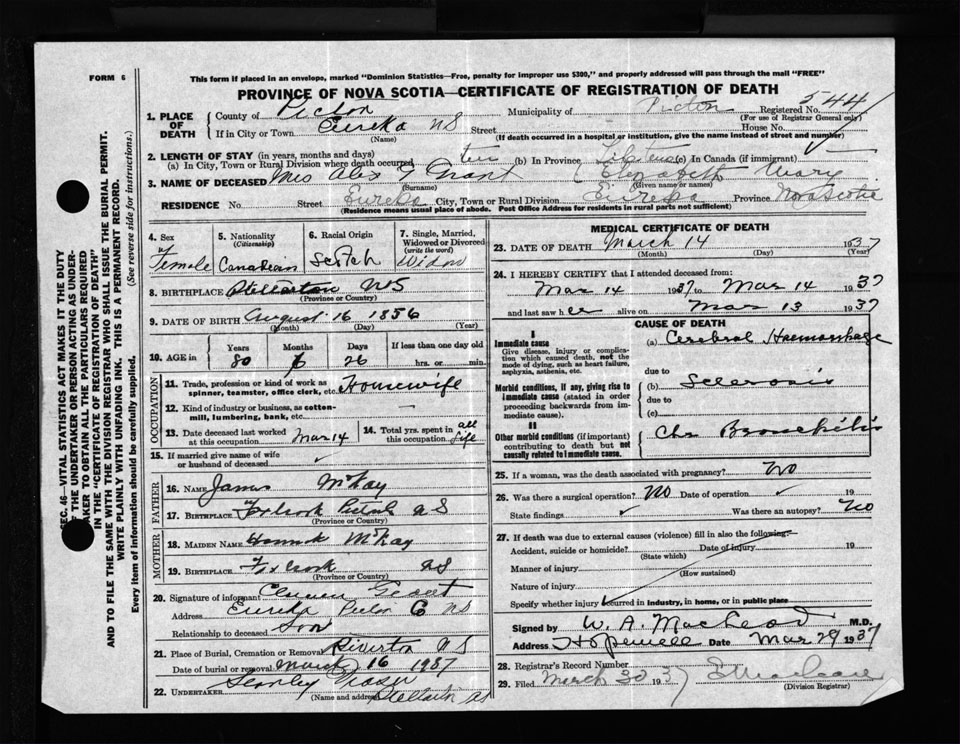 FORM 6
This form if placed in an envelope, marked "Dominion Statistics—Free, penalty for improper use $300," and properly addressed will pass through the mail "FREE"
PROVINCE OF NOVA SCOTIA—CERTIFICATE OF REGISTRATION OF DEATH
1. PLACE OF DEATH
County of Pictou Municipality of Pictou Registered No. 544
(For use of Registrar General only)
If in City or Town Eureka NS Street House No.
(Name) (If death occurred in a hospital or institution, give the name instead of street and number)
2. LENGTH OF STAY (in years, months and days)
(a) In City, Town or Rural Division where death occurred (b) In Province Lifetime (c) In Canada (if immigrant)
3. NAME OF DECEASED Mrs Alex G Grant (Elizabeth Mary
(Surname) (Given name or names)
RESIDENCE No Street Eureka City, Town or Rural Division Eureka Province Nova Scotia
(Residence means usual place of abode. Post Office Address for residents in rural parts not sufficient)
4. Sex
Female
5. Nationality
(Citizenship)
Canadian
6. Racial Origin
Scotch
7. Single, Married, Widowed or Divorced
(write the word)
Widow
8. BIRTHPLACE Stellarton NS
(Province or Country)
9. DATE OF BIRTH August 16 1856
(Month) (Day) (Year)
10. AGE in
Years Months Days If less than one day old
80 6 26 hrs. or min.
OCCUPATION
11. Trade, profession or kind of work as spinner, teamster, office clerk, etc. Housewife
12. Kind of industry or business, as cotton-mill, lumbering, bank, etc. —
13. Date deceased last worked at this occupation Mar 14
14. Total yrs. spent in this occupation all life
15. If married give name of wife or husband of deceased ✓
FATHER
16. NAME James McKay
17. BIRTHPLACE Foxbrook Pictou NS
(Province or Country)
MOTHER
18. MAIDEN NAME Hannah McKay
19. BIRTHPLACE Foxbrook NS
(Province or Country)
20. Signature of informant Grant
Address Eureka Pictou C NS
Relationship to deceased Son
21. Place of Burial, Cremation or Removal Riverton NS
Date of burial or removal March 16 1937
22. UNDERTAKER Stanley Fraser
(Name and address) Stellarton NS
MEDICAL CERTIFICATE OF DEATH
23. DATE OF DEATH March 14 1937
(Month) (Day) (Year)
24. I HEREBY CERTIFY that I attended deceased from:
Mar 14 1937 to Mar 14 1937
and last saw her alive on Mar 13 1937
CAUSE OF DEATH
I
Immediate cause
Give disease, injury or complication which caused death, not the mode of dying, such as heart failure, asphyxia, asthenia, etc.
(a) Cerebral Haemorrhage
due to
Morbid conditions, if any, giving rise to immediate cause (stated in order proceeding backwards from immediate cause).
(b) Sclerosis
due to
(c)
II
Other morbid conditions (if important) contributing to death but not causally related to immediate cause.
Chr Bronchitis
25. If a woman, was the death associated with pregnancy? No
26. Was there a surgical operation? No Date of operation ✓ 19
State findings ✓ Was there an autopsy? No
27. If death was due to external causes (violence) fill in also the following:—
Accident, suicide or homicide? Date of injury 19
(State which)
Manner of injury
(How sustained)
Nature of injury
Specify whether injury occurred in industry, in home, or in public place
Signed by W. A. MacLeod M.D.
Address Hopewell Date Mar 29 1937
28. Registrar's Record Number
29. Filed March 30 1937
(Division Registrar)
SEC. 46—VITAL STATISTICS ACT MAKES IT THE DUTY
OF THE UNDERTAKER OR PERSON ACTING AS UNDERTAKER TO OBTAIN ALL THE PARTICULARS REQUIRED
IN THE "CERTIFICATE OF REGISTRATION OF DEATH"
AND TO FILE THE SAME WITH THE DIVISION REGISTRAR WHO SHALL ISSUE THE BURIAL PERMIT.
WRITE PLAINLY WITH UNFADING INK. THIS IS A PERMANENT RECORD.
Every item of information should be carefully supplied. (See reverse side for instructions.)